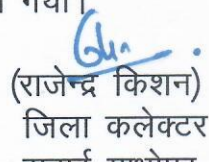 गया।
(राजेन्द्र किशन)
जिला कलेक्टर